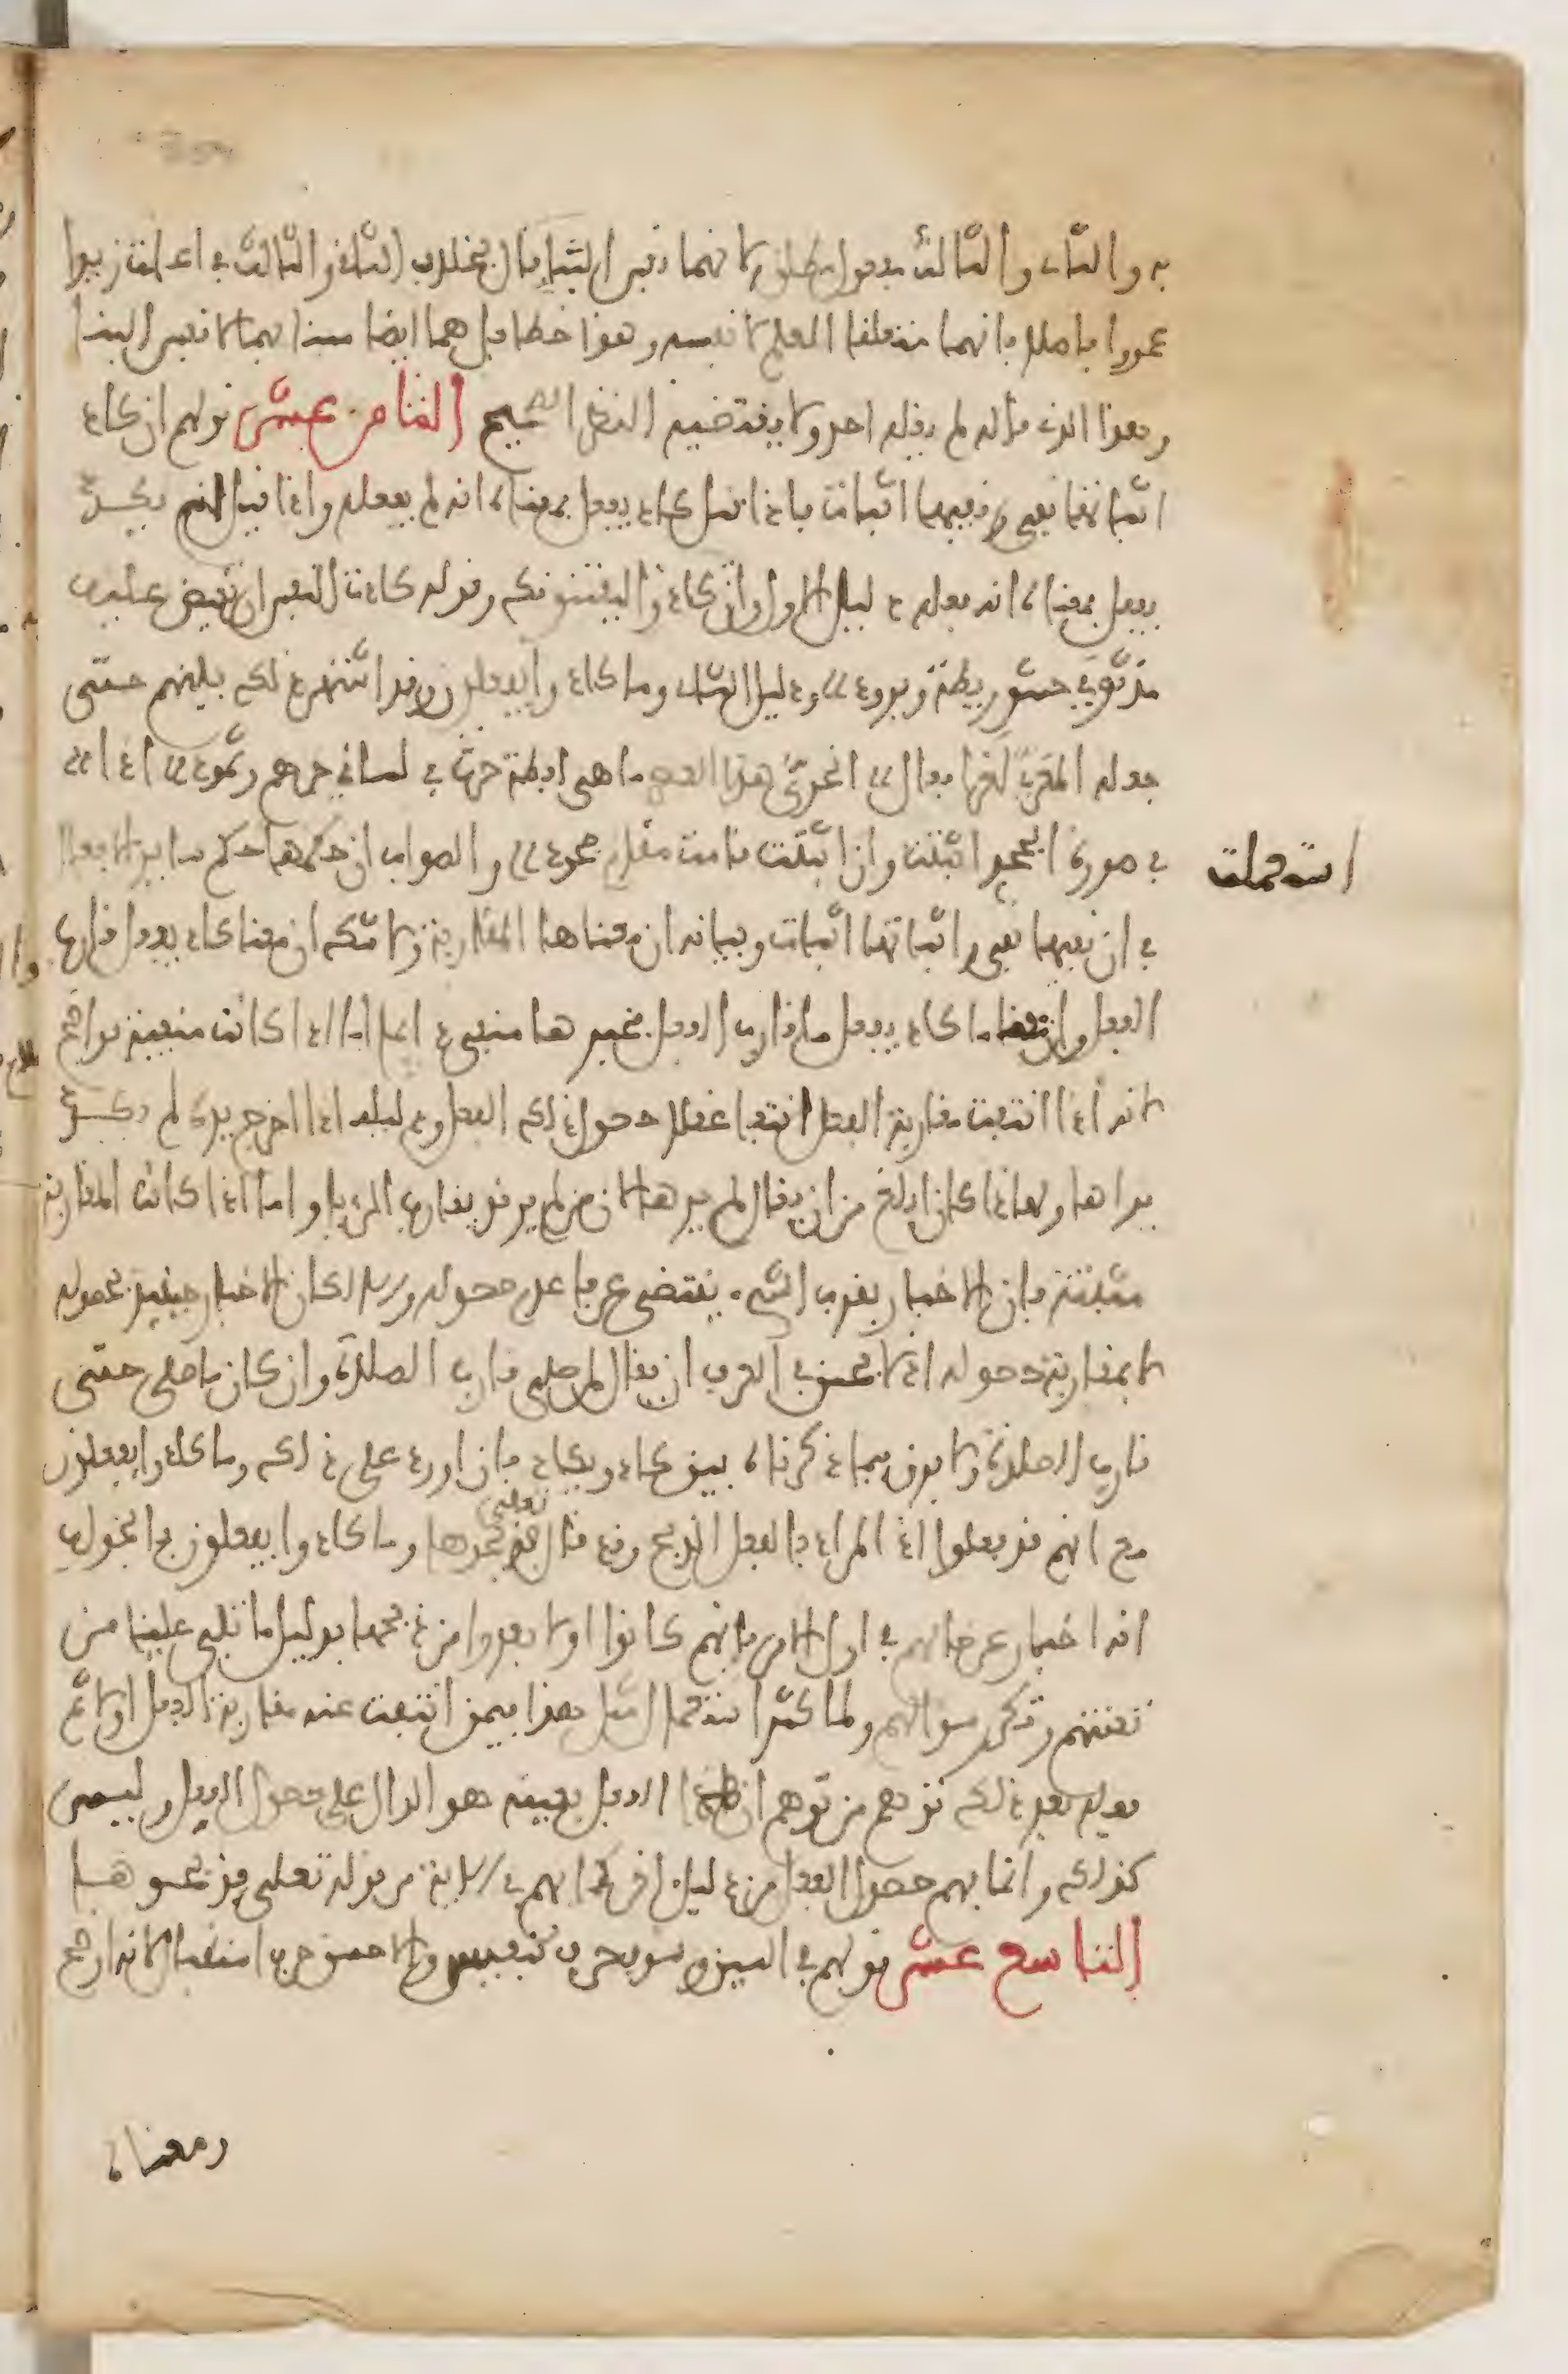 به والثاني والثالث مفعول مطلق لانهما نفس النبا قال بخلاف الثاني والثالث في اعلمت زيدا
عمروا فاضلا فانهما متعلقا العلم لا نفسه وهذا خطا بل هما ايضا منبا بهما لا نفس النبا
وهذا الذي قاله لم يقله احد ولا يقتضيه النظر الصحيح الثامن عشر قولهم ان كاد
اثباتها نفي ونفيها اثبات فاذا قيل كاد يفعل فمعناه انه لم يفعله واذا قيل لم يكد
يفعل فمعناه انه فعله دليل الاول وان كادوا ليفتنونك وقوله كادت النفس ان تفيض عليه
مذ ثوى حشو ريطة وبرود ودليل الثاني وما كادوا يفعلون وقد اشتهر ذلك بينهم حتى
جعله المعري لغزا فقال انحوي هذا العصر ما هي لفظة جرت في لساني جرهم وثمود اذا
استعملت
في صورة الجحد اثبتت وان اثبتت قامت مقام جحود والصواب ان حكمها حكم ساير الافعال
في ان نفيها نفي واثباتها اثبات وبيانه ان معناها المقاربة ولا شك ان معنا كاد يفعل قارب
الفعل وان معنا ما كاد يفعل ما قارب الفعل فخبرها منفي دايما اما اذا كانت منفية فواضح
لانه اذا انتفت مقاربة الفعل انتفا عقلا حصول ذلك الفعل ودليله اذا اخرج يده لم يكد
يراها ولهذا كان ابلغ من ان يقال لم يرها لان من لم ير قد يقارب الرويا واما اذا كانت المقاربة
مثبتة فان الاخبار بقرب الشيء يقتضي عرفا عدم حصوله والا لكان الاخبار حينئذ بحصوله
لا بمقاربة حصوله اذ لا يحسن في العرف ان يقال لمن صلى قارب الصلاة وان كان ما صلى حتى
قارب الصلاة ولا فرق فيما ذكرناه بين كاد ويكاد فان اورد على ذلك وما كادوا يفعلون
مع انهم قد فعلوا اذ المراد بالفعل الذبح وقد قال تعلى فذبحوها وما كادوا يفعلون فالجواب
انه اخبار عن حالهم في اول الامر فانهم كانوا اولا بعدوا من ذبحها بدليل ما تلي علينا من
تعنتهم وتكرر سوالهم ولما كثر استعمال مثل هذا فيمن انتفت عنه مقاربة الفعل اولا ثم
فعله بعد ذلك توهم من توهم ان هذا الفعل بعينه هو الدال على حصول الفعل وليس
كذلك وانما فهم حصول الفعل من دليل اخر كما فهم في الاية من قوله تعلى فذبحوها
التاسع عشر قولهم في السين وسوف حرف تنفيس والاحسن حرف استقبال لانه اوضح
ومعناه